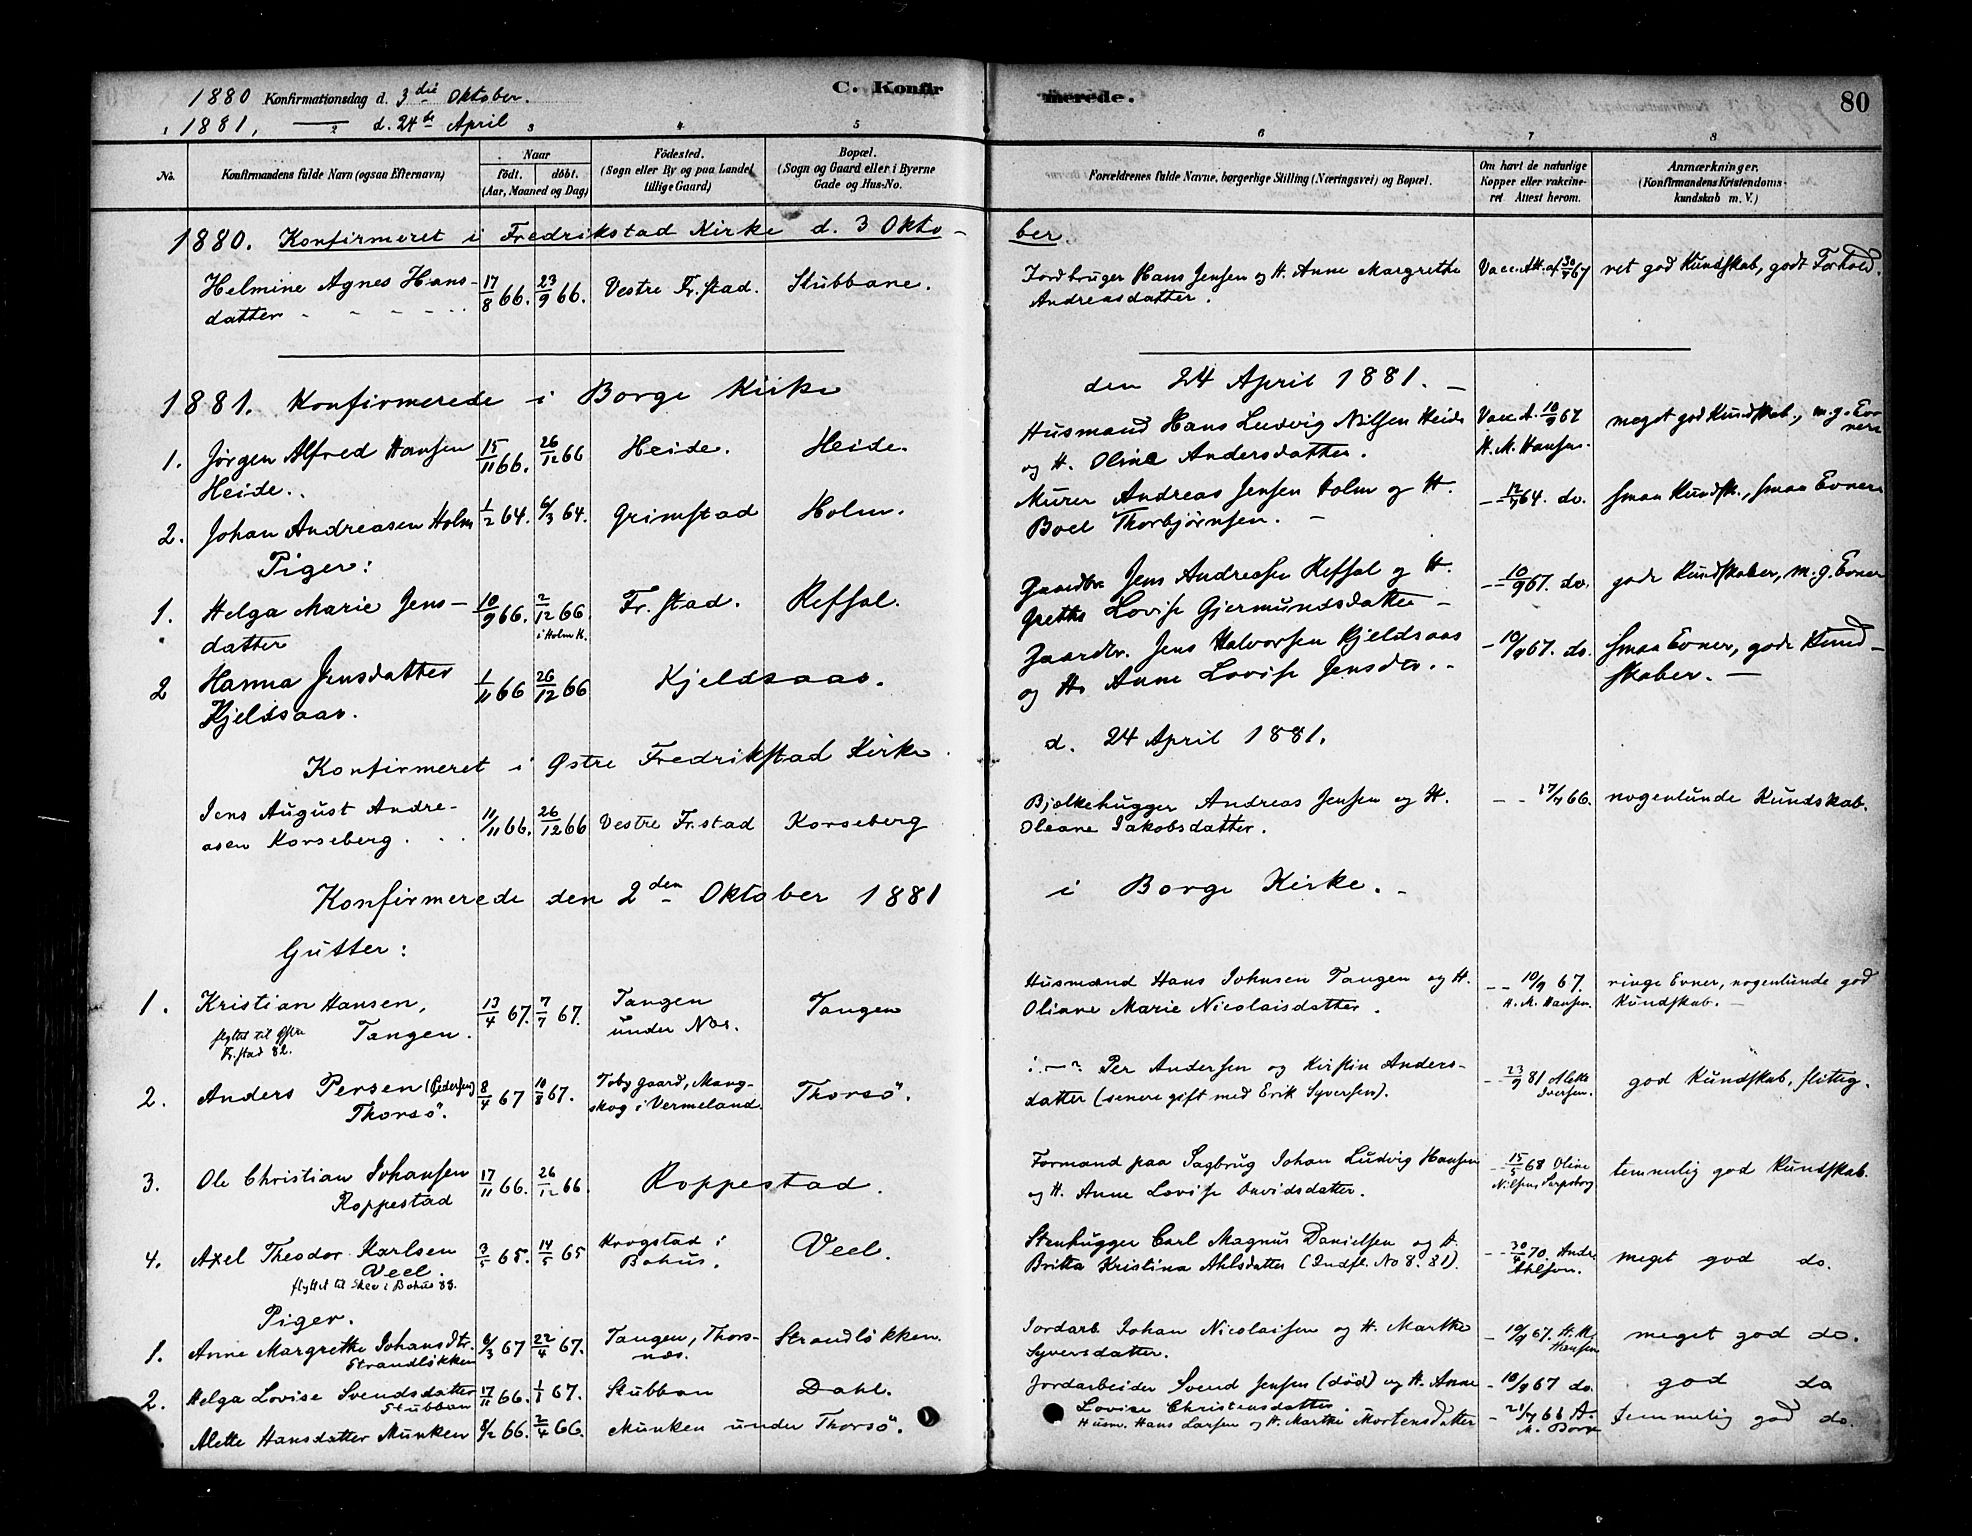 1880 Konfirmationsdag d. 3die Oktober.
1881, d. 24de April
C. Konfirmerede.
80
1 2 3 4 5 6 7 8
No.
Konfirmandens fulde Navn (ogsaa Efternavn)
Naar
født. døbt.
(Aar, Maaned og Dag)
Födested.
(Sogn eller By og paa Landet tillige Gaard)
Bopæl.
(Sogn og Gaard eller i Byerne Gade og Hus-No.
Forældrenes fulde Navne, borgerlige Stilling (Næringsvei) og Bopæl.
Om havt de naturlige Kopper eller vakcineret. Attest herom.
Anmærkninger.
(Konfirmandens Kristendomskundskab m. V.)
1880. Konfirmeret i Fredrikstad Kirke d. 3 Oktober
Helmine Agnes Hans- 17/8 66. 23/9 66. Vestre Fr.stad. Stubbane. Jordbruger Hans Jensen og H. Anne Margrethe Vacc. Att. af 67 ret god Kundskab, godt Forhold.
datter Andreasdatter.
1881. Konfirmerede i Borge Kirke den 24 April 1881.
1. Jørgen Alfred Hansen 15/11 66. 26/12 66 Heide. Heide. Husmand Hans Ludvig Nilsen Heide Vacc. A. 10/9 67 meget god Kundskab, m. g. Evner
Heide. og H. Oline Andersdatter. H. M. Hansen.
2. Johan Andreasen Holm 1/2 64. 6/3 64. Grimstad Holm. Murer Andreas Jensen Holm og H. 64. do. smaa Kundsk., smaa Evner
Boel Thorbjørnsen.
Piger:
1. Helga Marie Jens- 10/9 66. 2/12 66. Fr.stad. Refsal. Gaardbr. Jens Andreasen Refsal og H. 10/9 67. do. gode Kundskaber, m. g. Evner
datter i Holm K. Grethe Lovise Gjermundsdatter
2 Hanna Jensdatter 1/11 66 26/12 66 Kjeldsaas. Gaardbr. Jens Halvorsen Kjeldsaas 10/9 67. do. smaa Evner, gode Kund-
Kjeldsaas. og H. Anne Lovise Jensdtr. skaber.
Konfirmeret i Østre Fredrikstad Kirke d. 24 April 1881.
Jens August Andre- 11/11 66. 26/12 66 Vestre Fr.stad Korseberg Bjelkehugger Andreas Jensen og H. 66. nogenlunde Kundskab.
asen Korseberg. Oleane Jakobsdatter.
Konfirmerede den 2den Oktober 1881 i Borge Kirke.
Gutter:
1. Kristian Hansen, 13/4 67. 7/7 67. Tangen Tangen Husmand Hans Johnsen Tangen og H. 10/9 67. ringe Evner, nogenlunde god
Tangen. under Nes. Oliane Marie Nicolaisdatter. H. M. Hansen. Kundskab.
flyttet til Østre
Fr.stad 82.
2. Anders Persen (Pedersen) 8/4 67 10/8 67. Tobygaard, Mang- Thorsö. Per Andersen og Kirstin Anders- 23/9 81 Alette god Kundskab, flittig.
Thorsö. skog i Vermeland. datter (senere gift med Erik Syversen). Iversen.
3. Ole Christian Johansen 17/11 66. 26/12 66. Roppestad. Formand paa Sagbrug Johan Ludvig Hansen 15/5 68 Oline temmelig god Kundskab.
Roppestad og H. Anne Lovise Davidsdatter. Nilsen, Sarpsborg
4. Axel Theodor Karlsen 3/5 65. 14/5 65 Krogstad i Veel. Stenhugger Carl Magnus Danielsen og H. 30/4 70. Andr. meget god do.
Veel. Bohus. Britta Kristina Ahlsdatter (Indfl. No 8. 81). Ahlson.
flyttet til Skee i Bohus 83.
Piger.
1. Anne Margrethe Johansdtr. 6/3 67 22/4 67. Tangen, Thors- Strandløkken. Jordarb. Johan Nicolaisen og H. Marthe 10/9 67. H. M. meget god do.
Strandløkken næs. Syversdatter. Hansen
2. Helga Lovise Svendsdatter 17/11 66. 1/1 67. Stubban Dahl. Jordarbeider Svend Jensen (död) og H. Anne 10/9 67 do. god do
Stubban Lovise Christensdatter.
Alette Hansdatter Munken 8/2 66. 2/4 66. Munken under Thorsö. Husm. Hans Larsen og H. Marthe Mortensdatter 66 A. temmelig god do.
M. Borge